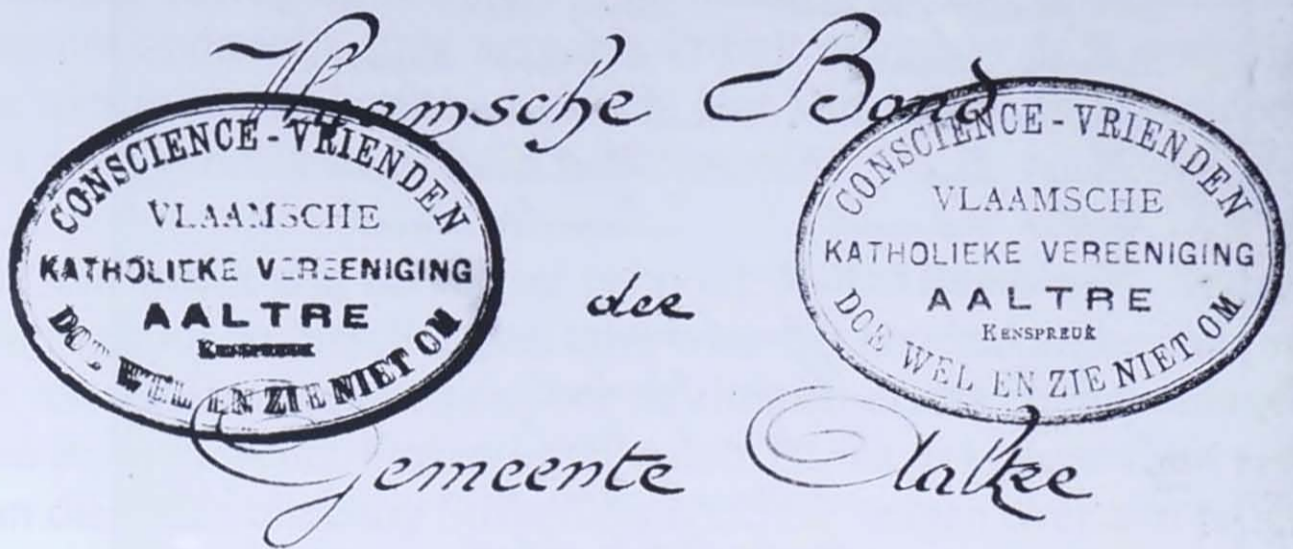 Vlaamsche Bond
CONSCIENCE-VRIENDEN
VLAAMSCHE
KATHOLIEKE VEREENIGING
AALTRE
KENSPREUK
DOE WEL EN ZIE NIET OM
der
CONSCIENCE-VRIENDEN
VLAAMSCHE
KATHOLIEKE VEREENIGING
AALTRE
KENSPREUK
DOE WEL EN ZIE NIET OM
Gemeente Aaltre